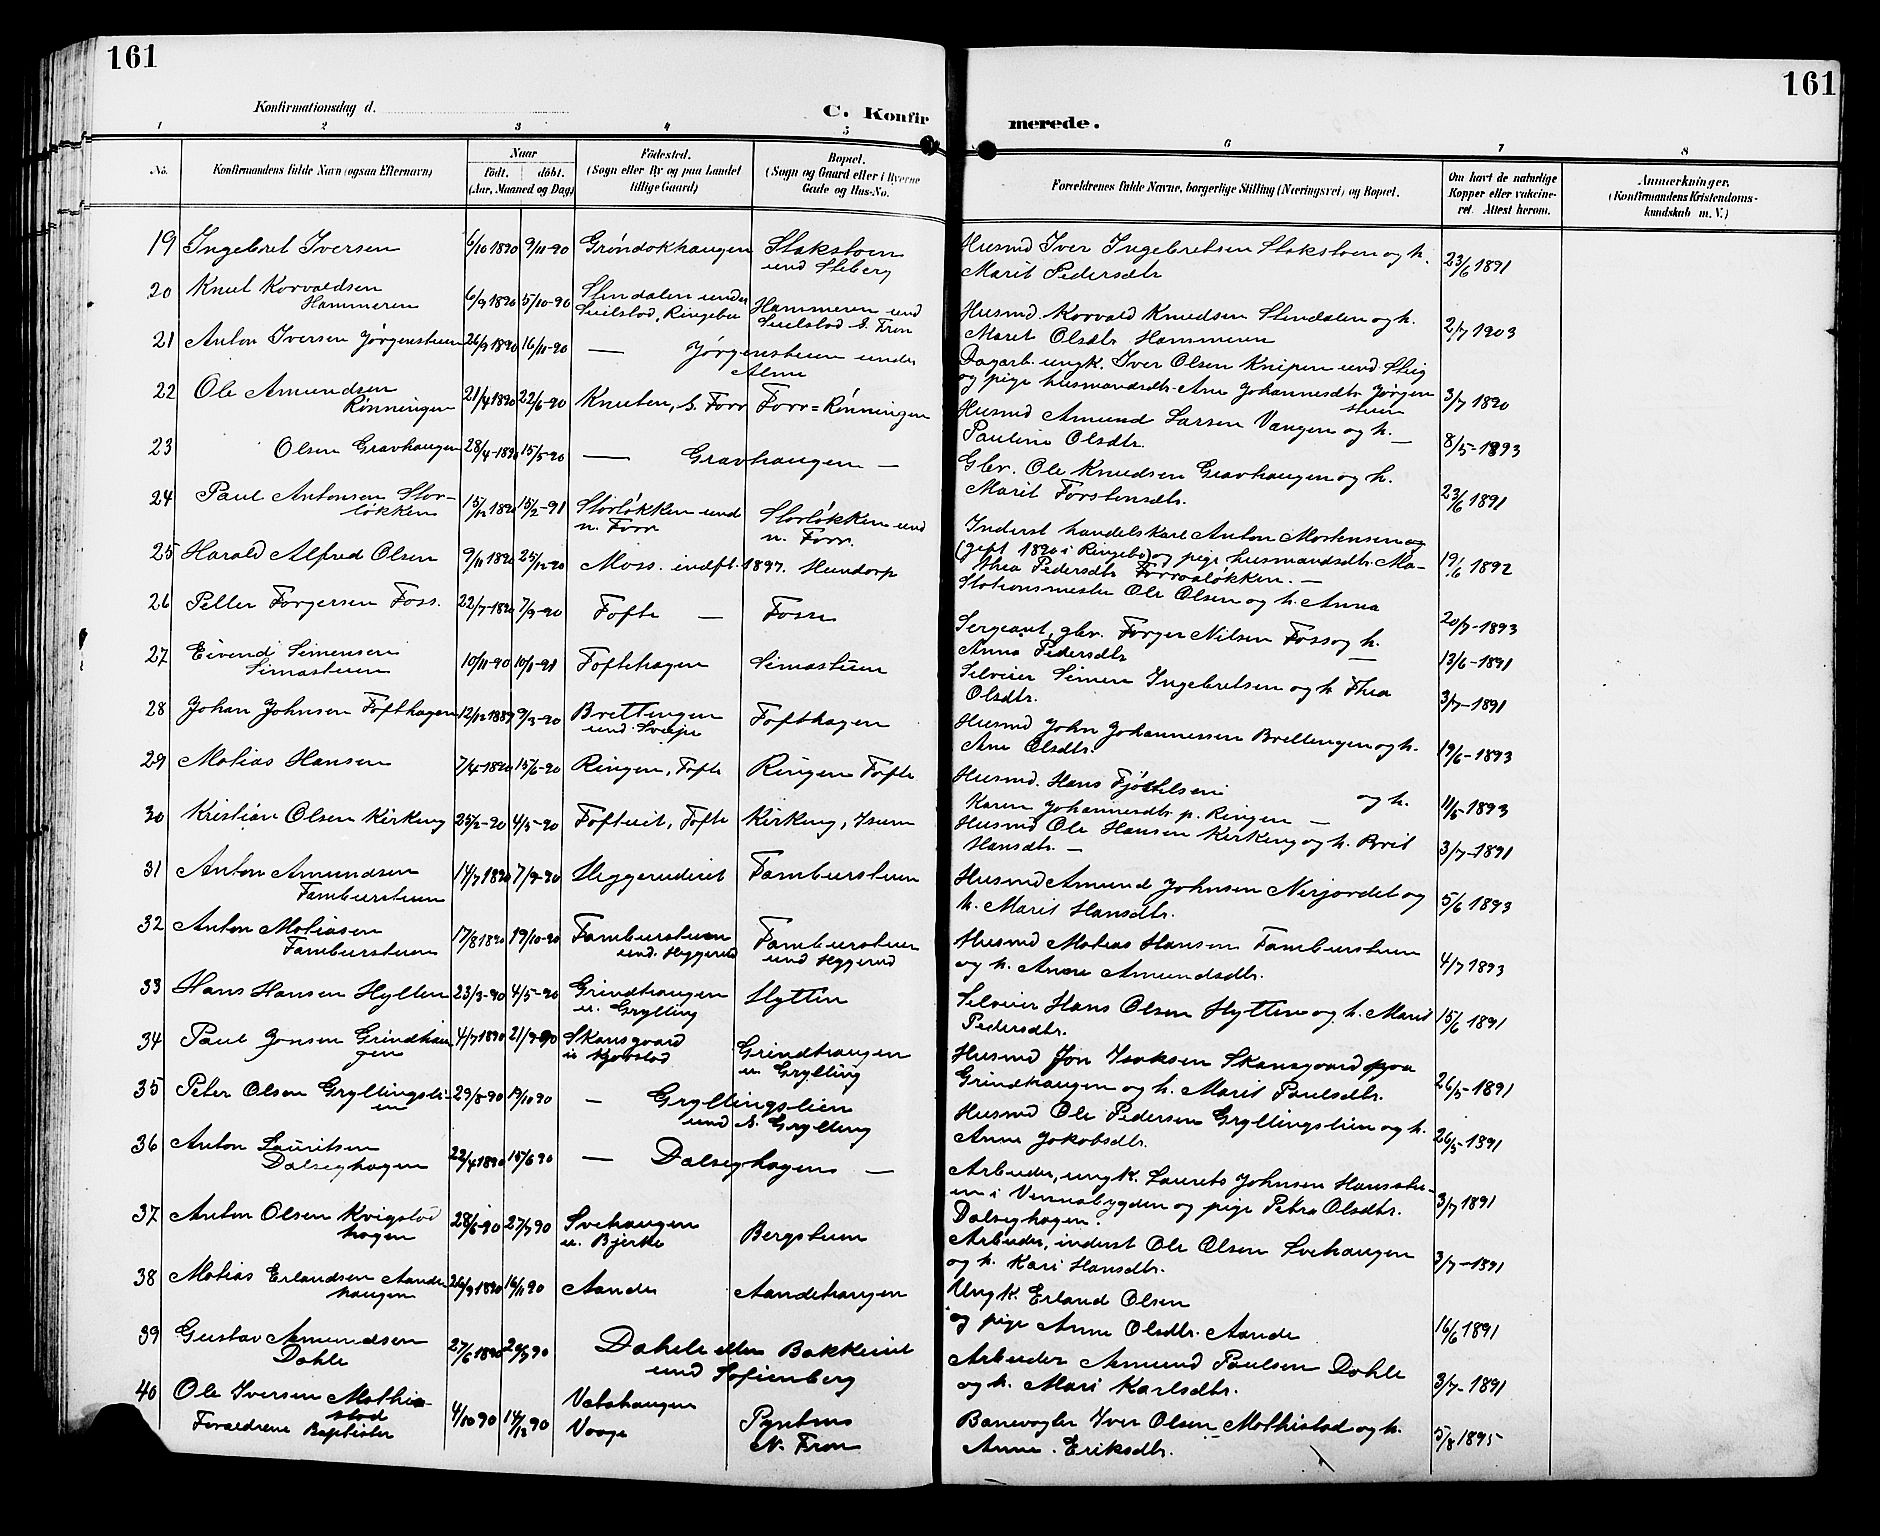 161
161
Konfirmationsdag d.
C. Konfirmerede.
1 2 3 4 5 6 7 8
No.
Konfirmandens fulde Navn (ogsaa Efternavn)
Naar
Födt. döbt.
(Aar, Maaned og Dag)
Födested.
(Sogn eller By og paa Landet
tillige Gaard)
Bopæl.
(Sogn og Gaard eller i Byerne
Gade og Hus-No.
Forældrenes fulde Navne, borgerlige Stilling (Næringsvei) og Bopæl.
Om havt de naturlige
Kopper eller vakcine-
ret. Attest herom.
Anmærkninger.
(Konfirmandens Kristendoms-
kundskab m. V.)
19 Ingebret Iversen 6/10 1890 9/11-90 Gröndokhaugen Stakstoen
und Steberg
Husmd Iver Ingebretsen Stakstoen og h.
Marit Pedersdtr 23/6 1891
20 Knut Korvaldsen
Hammeren 6/9 1890 5/10-90 Stendalen under
Ringebu Hammeren und
S. Fron
Husmd. Korvald Knudsen Stendalen og h.
Marit Olsdtr Hammeren 2/7 1903
21 Anton Iversen Jörgenstuen 26/9 1890 16/11-90 — Jörgenstuen under
Alme
Dagarb. ungk. Iver Olsen Knipen und Stig
og pige husmandsdtr. Ane Johannesdtr Jörgen
stuen 3/7 1890
22 Ole Amundsen
Rönningen 21/4 1890 22/6-90 Knuten, S. Forr Forr=Rönningen
Husmd Amund Larsen Vangen og h. —
Pauline Olsdtr. 8/5-1893
23 Olsen Gravhaugen 28/4-1890 15/5-90 — Gravhaugen —
Gbr. Ole Knudsen Gravhaugen og h.
Marit Torstensdtr. 23/6 1891
24 Paul Antonsen Stor-
lökken 15/12 1890 15/2-91 Storlökken und
n. Forr Storlökken und
n. Forr.
Inderst handelskarl Anton Mortensen og
(gift 1890 i Ringebo) og pige husmandsdtr. Ma-
thea Pedersdtr Forvalökken. — 19/6 1892
25 Harald Alfred Olsen 9/11 1890 25/12-90 Moss. indfl. 1897. Hundorp
Stationsmester Ole Olsen og h. Anna 20/7-1893
26 Petter Torgersen Foss. 22/7-1890 7/9-90 Tofte — Fossen
Sergeant, gbr. Torger Nilsen Foss og h.
Anna Pedersdtr — 13/6-1891
27 Eivend Simensen
Simastuen 10/11-90 10/1-91 Toftehagen Simastuen
Selveier Simen Ingebretsen og h. Thea
Olsdtr. 3/7-1891
28 Johan Johnsen Tofthagen 12/12 1889 9/3-90 Brettingen
und Sveipe Tofthagen
Husmd John Johannessen Brettingen og h.
Ane Olsdtr. 19/6-1893
29 Matias Hansen 7/4-1890 15/6-90 Ringen, Tofte Ringen Tofte
Husmd. Hans og h.
Karen Johannesdtr p. Ringen — 11/5-1893
30 Kristian Olsen Kirkeng 25/2-90 4/5-90 Tofteeit, Tofte Kirkeng, Isum
Husmd Ole Hansen Kirkeng og h. Brit
Hansdtr. — 3/7-1891
31 Anton Amundsen
Tamburstuen 14/7 1890 7/9-90 Heggerudeiet Tamburstuen
Husmd Amund Johnsen Nerjordet og
h. Marit Hansdtr. 5/6 1893
32 Anton Matiasen
Tamburstuen 17/8 1890 19/10-90 Tamburstuen
und. Heggerud Tamburstuen
und Heggerud
Husmd Matias Hansen Tamburstuen
og h. Anne Amundsdtr. 4/7 1893
33 Hans Hansen Hytten 23/3-90 4/5-90 Grindhaugen
u. Grytting Hytten
Selveier Hans Olsen Hytten og h. Marit
Pedersdtr. 15/6 1891
34 Paul Jonsen Grindhau
gen 4/7 1890 21/9-90 Skansgaard
Grindhaugen
u. Grytting
Husmd Jon Isaksen Skansgaard paa
Grindhaugen og h. Marit Paulsdtr. 26/5-1891
35 Peter Olsen Gryttingsli-
en 29/8-90 19/10 90 — Gryttingslien
und S. Grytting
Husmd Ole Pedersen Gryttingslien og h.
Anne Jakobsdtr. 26/5-1891
36 Anton Lauritsen
Dalseghagen 22/4 1890 15/6 90 — Dalseghagen —
Arbeider, ungk. Laurits Johnsen Hansstu-
en i Vennebygden og pige Petra Olsdtr.
Dalseghagen. 3/7 1891
37 Anton Olsen Kvigstad
hagen 28/5-90 27/7 90 Svehaugen
u. Bjerke Bergstuen
Arbeider, inderst Ole Olsen Svehaugen
og h. Kari Hansdtr. 3/7-1891
38 Matias Erlandsen Aande
haugen 26/9 1890 16/11 90 Aande Aandehaugen
Ungk. Erland Olsen
og pige Anne Olsdtr. Aande 16/6 1891
39 Gustav Amundsen
Dahle 27/6 1890 20/7 90 Dahle eller Bakkeeiet
und Sofienberg
Arbeider Amund Paulsen Dahle
og h. Mari Karlsdtr. 3/7-1891
40 Ole Iversen Mathi-
stad
Forældrene Baptister 4/10 90 14/12 90 Vatshaugen
Vaage
N. Fron
Banevogter Iver Olsen Mathistad og h.
Anne Eriksdtr. 5/8 1895